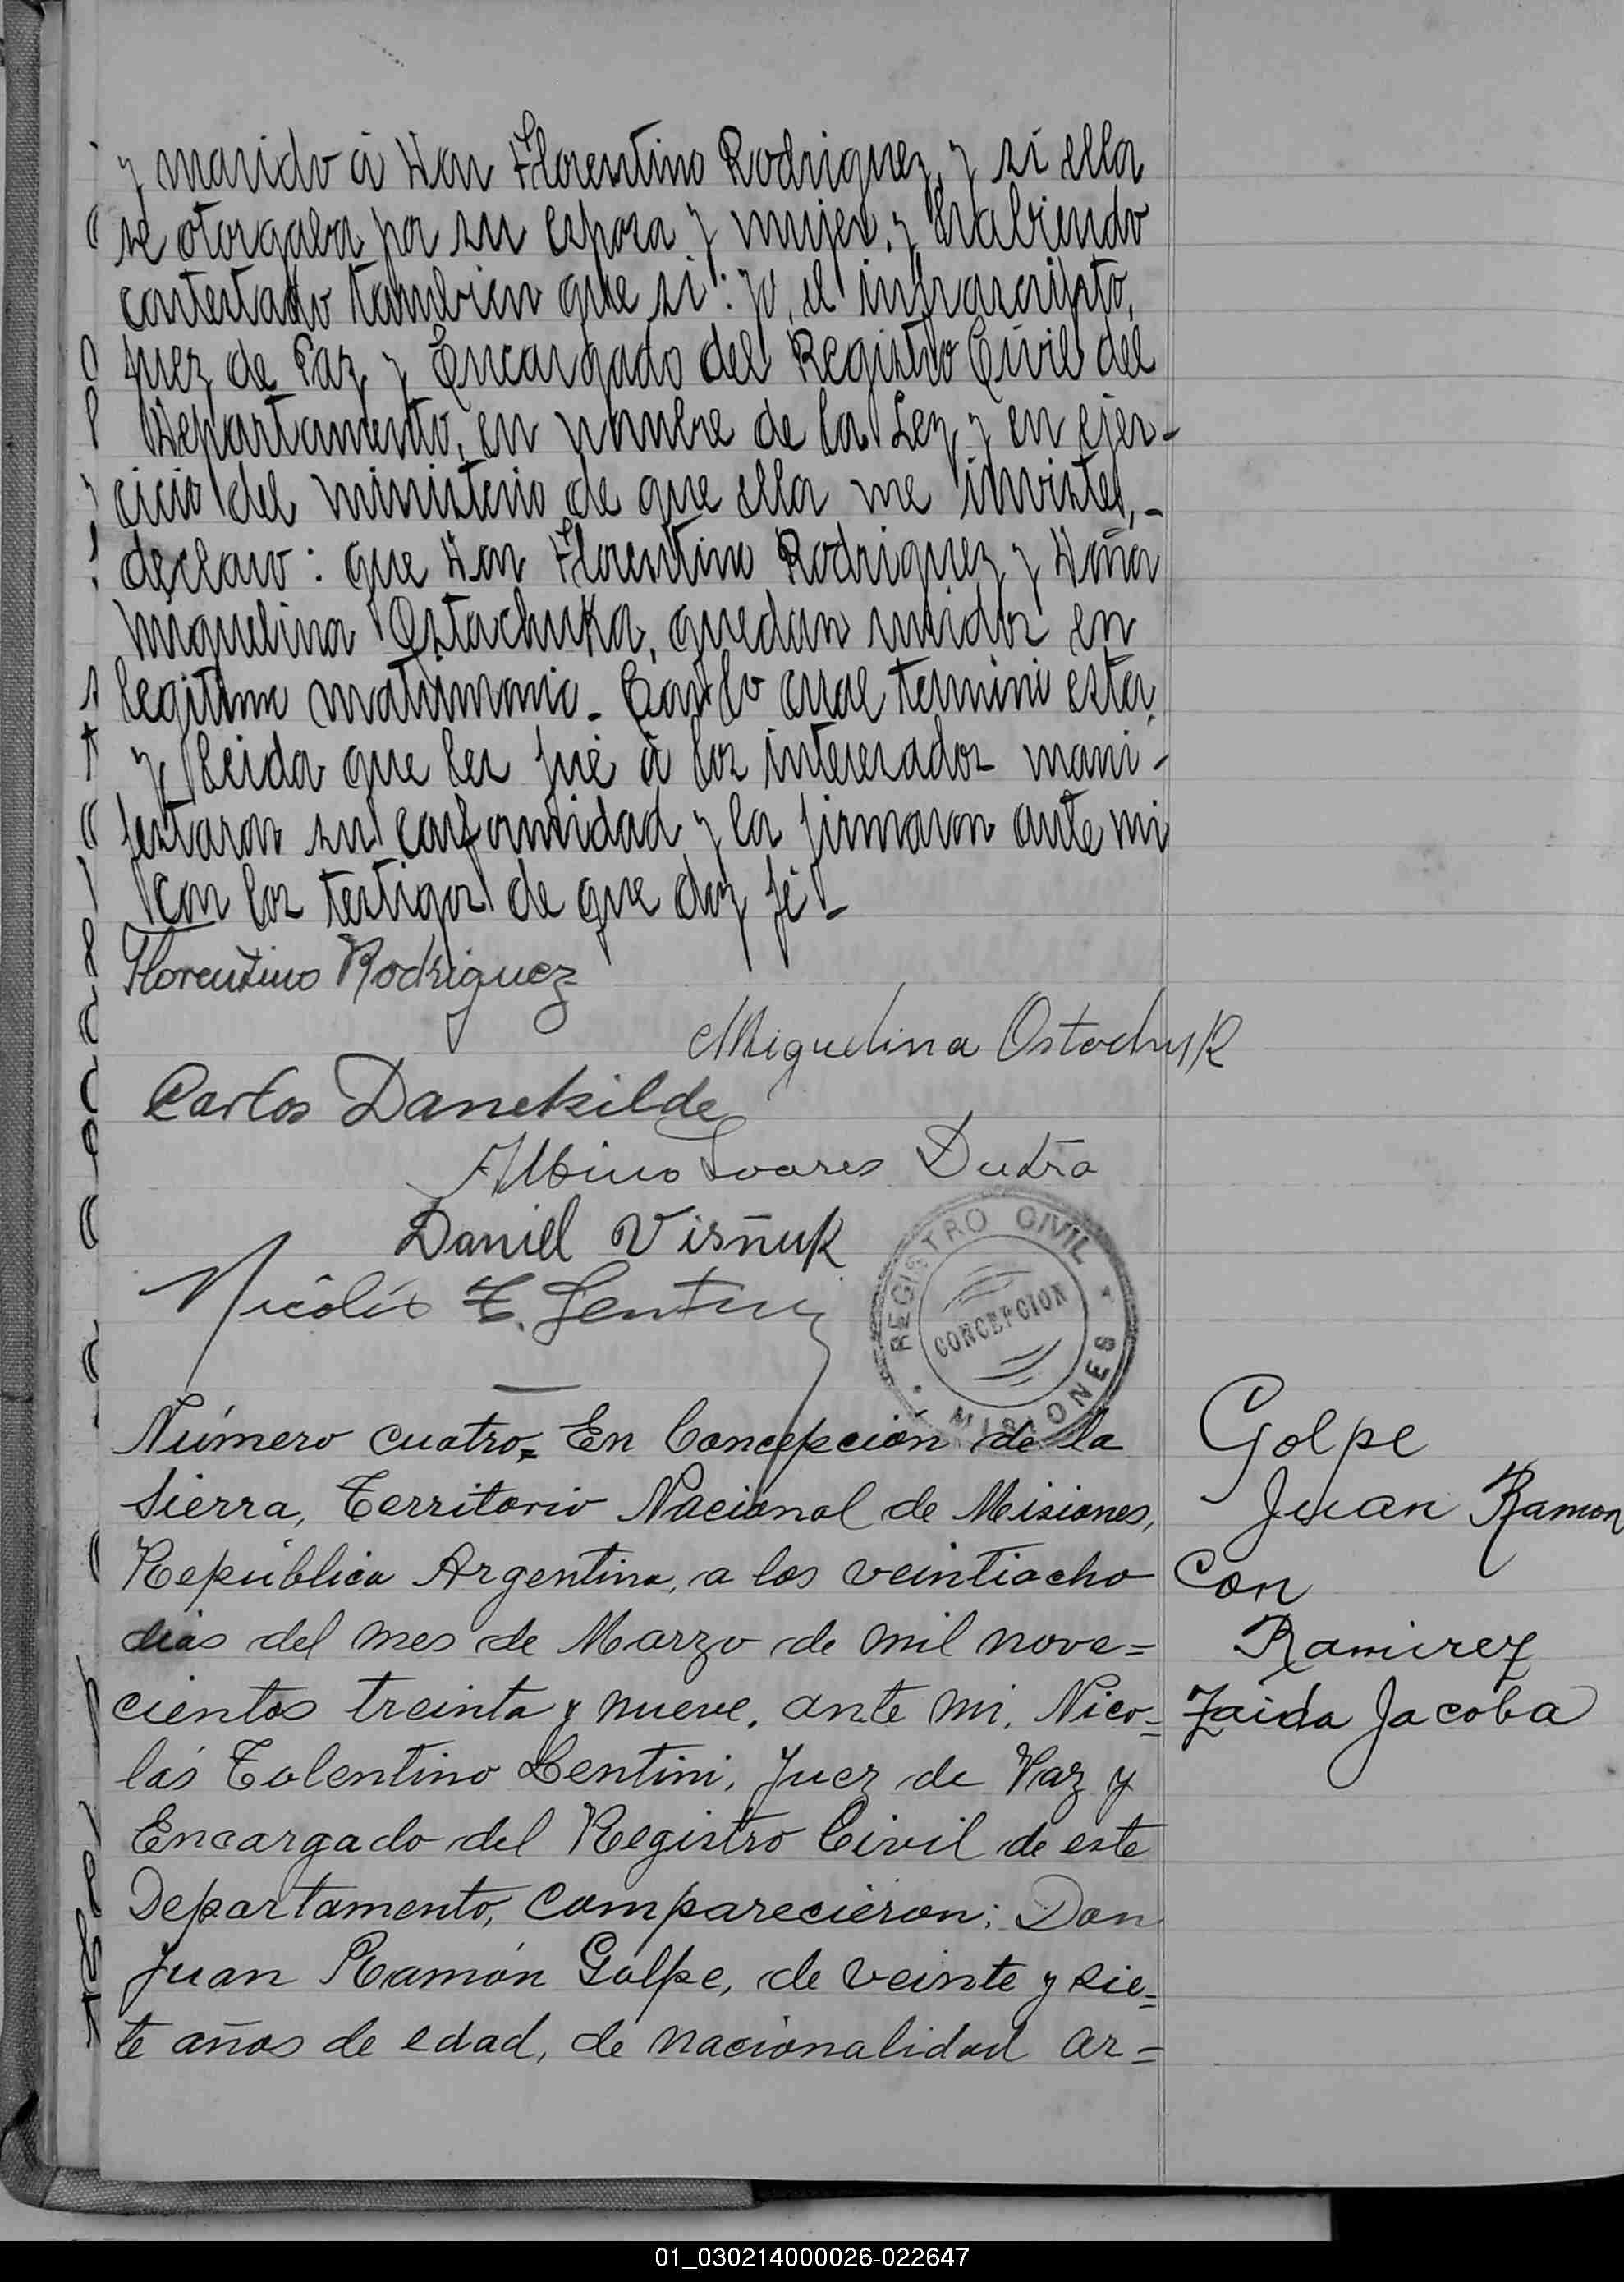 y marido á Don Florentino Rodriguez, y si ella
se otorgaba por su esposa y mujer, y habiendo
contestado tambien que si: yo, el infrascripto,
Juez de Paz y Encargado del Registro Civil del
Departamento, en nombre de la Ley y en ejer-
cicio del ministerio de que ella me inviste,-
declaro: que Don Florentino Rodriguez y Doña
Miquelina Ostachuka, quedan unidos en
legitimo matrimonio.- Con lo cual terminó esta
y leida que les fué á los interesados mani-
festaron su conformidad y la firmaron ante mi
con los testigos de que doy fé.-
Florentino Rodriguez
Miguelina Ostachuk
Carlos Danekilde
Albino Soares Dutra
Daniel Visñuk
Nicolás T. Lentini
REGISTRO CIVIL
CONCEPCION
MISIONES
Número cuatro= En Concepción de la
Sierra, Territorio Nacional de Misiones,
República Argentina, a los veintiocho
dias del mes de Marzo de mil nove=
cientos treinta y nueve, ante mi, Nico=
lás Tolentino Lentini, Juez de Paz y
Encargado del Registro Civil de este
Departamento, comparecieron: Don
Juan Ramón Golpe, de veinte y sie=
te años de edad, de nacionalidad ar=
Golpe
Juan Ramon
Con
Ramirez
Zaida Jacoba
01_030214000026-022647